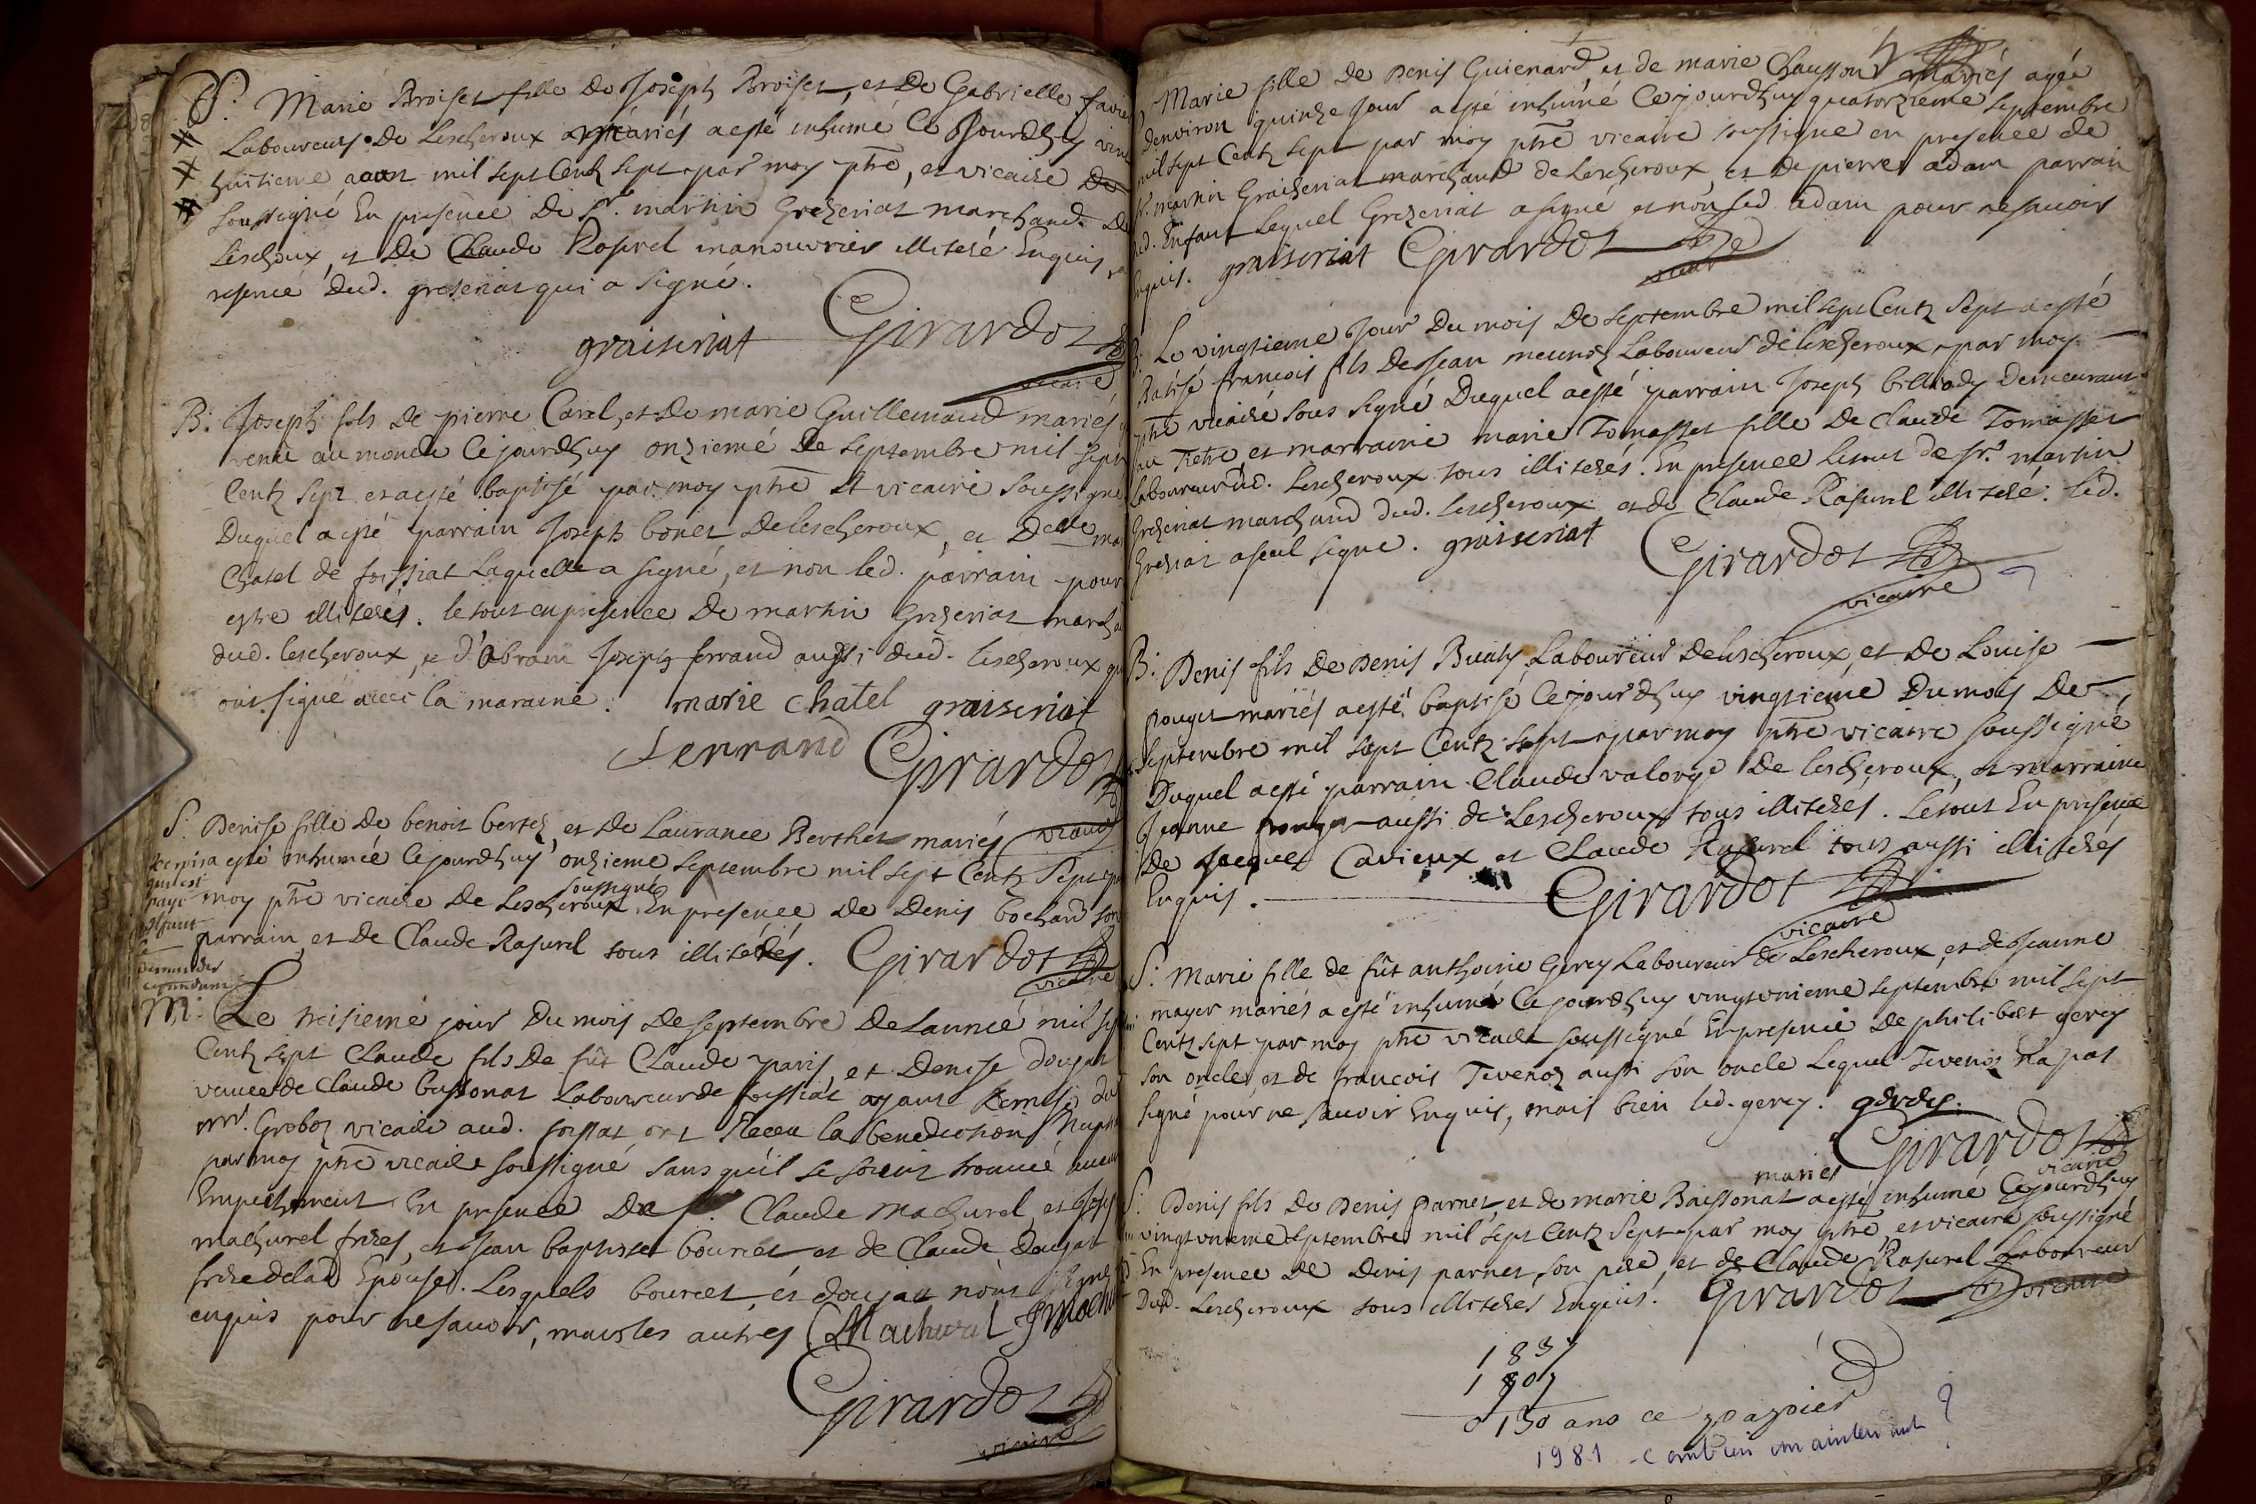 S. Marie Broiset fille de Joseph Broiset, et de Gabrielle favier
Laboureurs de Lescheroux mariés a esté inhumé Ce Jourdhuy vint
huitieme aoust mil sept Centz sept par moy ptre, et vicaire de
soussigné En presence de Sr. martin Grezeriat marchand de
Leschoux, et de Claude Rasurel manouvrier illiteré Enquis,
resence dud. grezeriat qui a signé.
graiseriat Girardot
vicaire
B. Joseph fils de pierre Carel, et de marie Guillemaud mariés
venu au monde Cejourdhuy onzieme de septembre mil sept
Centz sept et a esté baptisé par moy ptre et vicaire soussigné
Duquel a esté parrain Joseph bonet de lescheroux, et Delle mar
Chatel de foissiat Laquelle a signé, et non led. parrain pour
estre illiterés. le tout en presence de martin Grezeriat march
dud. lescheroux, et d'abram Joseph ferrand aussi dud. lescheroux qui
ont signé avec la maraine. marie chatel graiseriat
ferrand Girardot
S. Denise fille de benoit bertez, et de Laurance Berthet mariés
a esté inhumée Cejourdhuy onzieme septembre mil sept Centz Sept
soussigné
moy ptre vicaire de Lescheroux En presence de Denis bochard son
parrain, et de Claude Rasurel tous illiterés. Girardot
vicaire
M. Le treisieme jour du mois de septembre de Lannée mil sept
Centz sept Claude fils de fût Claude paris, et Denise doujat
veuve de Claude bussonat Laboureur de foissiat ayant Remise du
mr. Groboz vicaire aud. foissiat ont Receu la benediction Nupti
par moy ptre vicaire soussigné sans quil se soient trouvé aucun
Empechement En presence De Sr. Claude machurel, et Joseph
machurel freres, et Jean baptiste bourcet, et de Claude Doujat
frere delad Epouse. Lesquels bourcet, et doujat nont signé
enquis pour ne savoir, mais les autres C Machurel J Mach
Girardot
vicaire
Marie fille de Denis Guienard, et de marie Chausson mariés agée
denviron quinze Jour a esté inhumé Cejourdhuy quatorzieme septembre
mil sept Centz sept par moy ptre vicaire soussigné en presence de
Sr. martin Graiseriat marchand de Lescheroux, et de pierre adam parrain
dud. Enfant Lequel Grezeriat a signé et non led. adam pour ne savoir
Enquis. graiseriat Girardot
vicaire
B. Le vingtieme Jour du mois de septembre mil sept Centz sept a esté
Batisé francois fils de Jean meunez Laboureur de lescheroux, par moy
ptre vicaire sous signé Duquel a esté parrain Joseph billiady demeurant
et marraine marie Tomasset fille de Claude Tomasset
Laboureur dud. Lescheroux tous illiterés. En presence le tout de sr. martin
Grezeriat marchand dud. lescheroux et de Claude Rasurel illiteré. led.
Grezeriat a seul signé. graiseriat
Girardot
vicaire
B. Denis fils de Denis Buaty Laboureur de lescheroux, et de Louise
pouget mariés a esté baptisé Cejourdhuy vingtieme du mois de
septembre mil sept Centz sept par moy ptre vicaire soussigné
Duquel a esté parrain Claude valorge de lescheroux, et marraine
Jeanne pouget aussi de Lescheroux tous illiterés. Le tout En presence
de Jacques Cavieux et Claude Rasurel tous aussi illiterés
Enquis. Girardot
vicaire
S. Marie fille de fût anthoine Gerey Laboureur de Lescheroux, et de Jeanne
mayer mariés a esté inhumé Cejourdhuy vingtunieme septembre mil sept
Centz sept par moy ptre vicaire soussigné En presence de philibert gerey
son oncle, et de francois Tevenoz aussi son oncle Lequel Tevenoz na pas
signé pour ne savoir Enquis, mais bien led. gerey. gerey.
Girardot
vicaire
mariés
S. Denis fils de Denis parnet, et de marie Baissonat a esté inhumé Cejourdhuy
vingtunieme septembre mil sept Centz sept par moy ptre, et vicaire soussigné
En presence de Denis parnet, son pere, et de Claude Rasurel Laboureur
Dud. Lescheroux tous illiterés Enquis. Girardot vicaire
1837
1707
0130 ans ce papier
1981 - combien maintenant ?